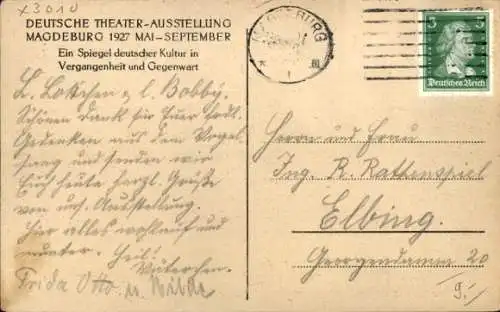 x3010
DEUTSCHE THEATER-AUSSTELLUNG
MAGDEBURG 1927 MAI-SEPTEMBER
Ein Spiegel deutscher Kultur in
Vergangenheit und Gegenwart
MAGDEBURG
* 1
5 5
Deutsches Reich
L. Lottchen & l. Bobby.
Schönen Dank für Euer frdl.
Gedenken aus dem Vogel-
sang und senden wir
Euch heute herzl. Grüße
von uns. Ausstellung.
Hier alles wohlauf und
munter. Heil!
Frida Otto u.
Herrn und Frau
Ing. R. Rattenspiel
Elbing.
Georgendamm 20
9.-